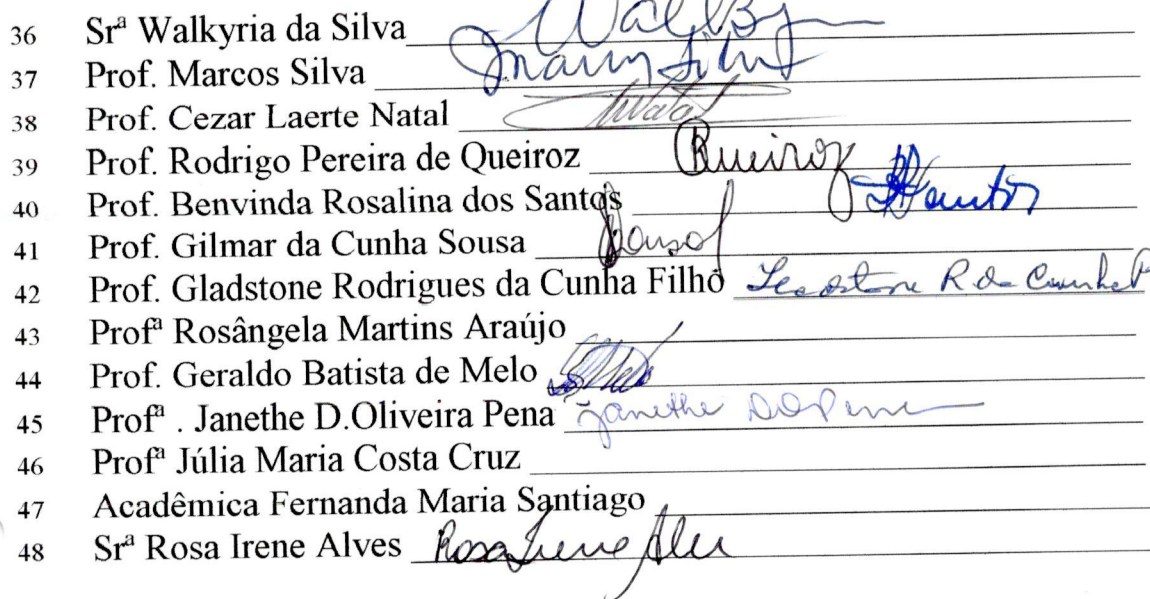 36 Srª Walkyria da Silva
37 Prof. Marcos Silva
38 Prof. Cezar Laerte Natal Natal
39 Prof. Rodrigo Pereira de Queiroz Queiroz
40 Prof. Benvinda Rosalina dos Santos Santos
41 Prof. Gilmar da Cunha Sousa
42 Prof. Gladstone Rodrigues da Cunha Filho
43 Profª Rosângela Martins Araújo
44 Prof. Geraldo Batista de Melo
45 Profª . Janethe D.Oliveira Pena Janethe
46 Profª Júlia Maria Costa Cruz
47 Acadêmica Fernanda Maria Santiago
48 Srª Rosa Irene Alves Rosa Irene Alves